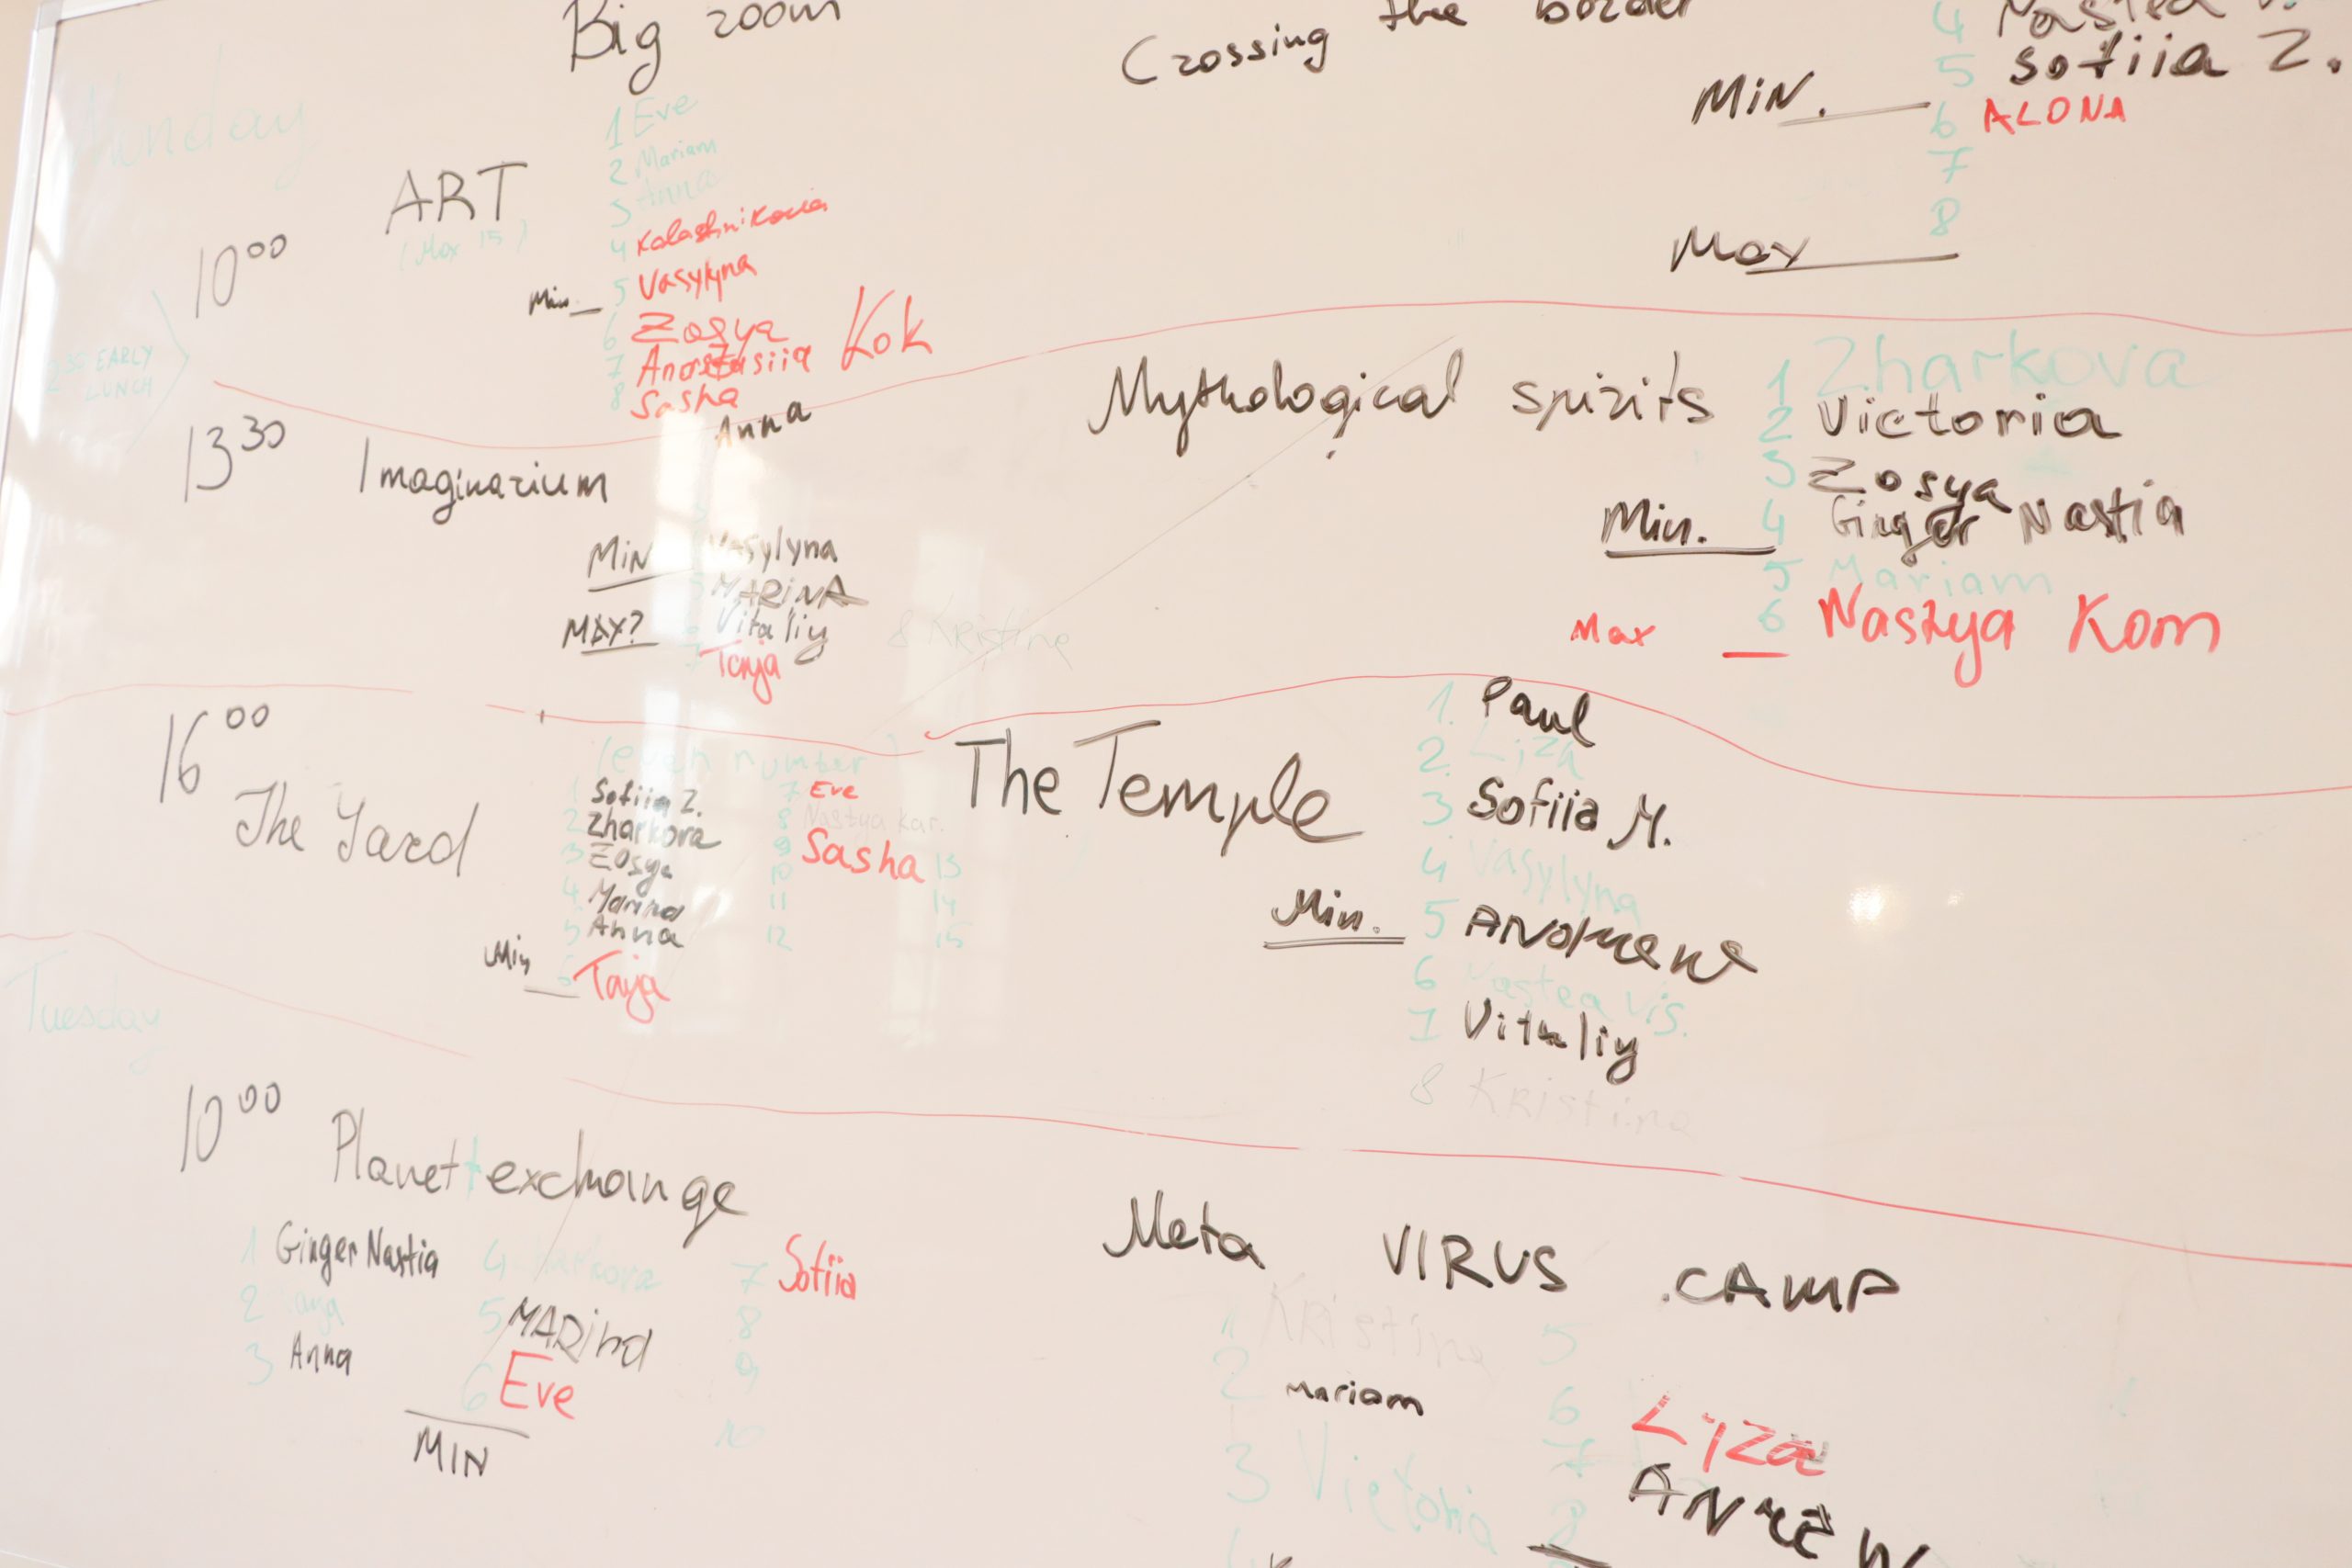 Big room
Crossing the border
4
5 Sofiia Z.
MIN.
6 ALONA
7
8
Max
Munday
1 Eve
2 Mariam
3 Anna
ART
(Max 15)
4 Kalashnikova
10 00
Min
5 Vasylyna
6 Zosya
7 Anastasiia Kok
8 Sasha
EARLY
LUNCH
13 30
Imaginarium
Anna
MIN
Vasylyna
5 MARINA
MAX?
Vitaliy
7 Tanja
8 Kristine
Mythological spirits
1 Zharkova
2 Victoria
3 Zosya
Min.
4 Ginger Nastia
5 Mariam
Max
6 Nastya Kom
16 00
The Yard
(even number)
1 Sofiia Z.
2 Zharkova
3 Zosya
4 Marina
5 Anna
Min
6 Tanja
7 Eve
8 Nastya Kar.
9 Sasha
10
11
12
13
14
15
The Temple
1. Paul
2. Liza
3 Sofiia M.
4 Vasylyna
Min.
5
6 Nastea Vis.
7 Vitaliy
8 Kristina
Tuesday
10 00
Planet exchange
1 Ginger Nastia
2
3 Anna
4 Zharkova
5 MARINA
6 Eve
MIN
7 Sofiia
8
9
10
Meta VIRUS CAMP
1 Kristina
2 Mariam
3 Victoria
5
6 Lyza
7
8